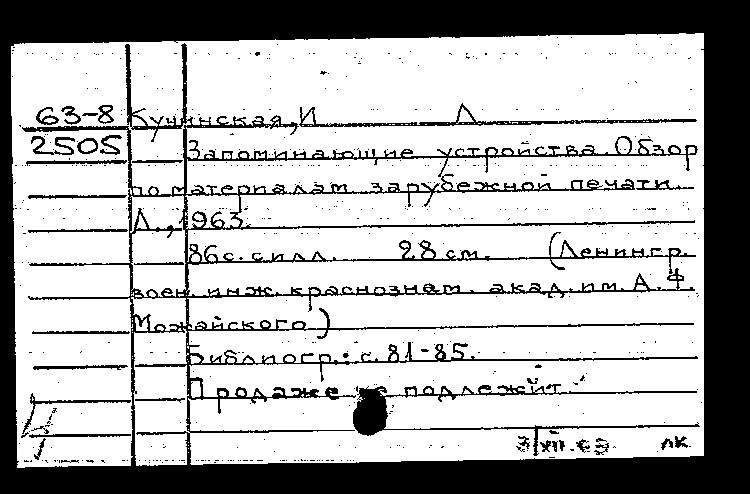 63-8 Кунинская, И Л
2505 Запоминающие устройства. Обзор
по материалам зарубежной печати.
Л., 1963.
86с. с илл. 28 см. (Ленингр.
воен. инж. краснознам. акад. им. А. Ф.
Можайского)
Библиогр.: с. 81-85.
Продаже не подлежит
3/XII.63 ЛК